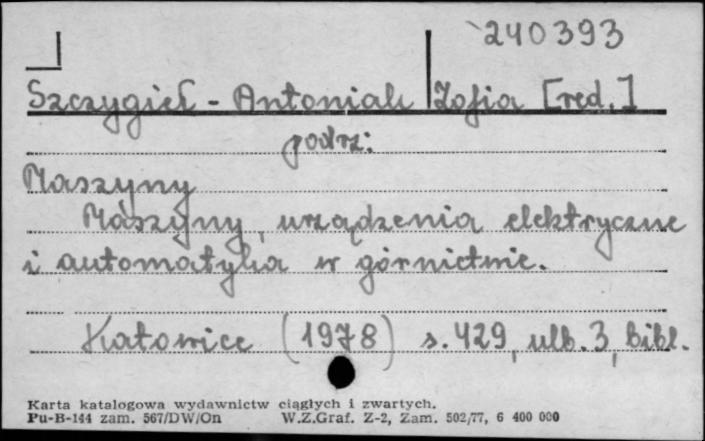 240393
Szczygieł - Antoniak Zofia [red.]
podrz:
Maszyny
Maszyny, urządzenia elektryczne
i automatyka w górnictwie.
Katowice (1978) s. 429, ulb. 3, bibl.
Karta katalogowa wydawnictw ciągłych i zwartych.
Pu-B-144 zam. 567/DW/On W.Z.Graf. Z-2, Zam. 502/77, 6 400 000